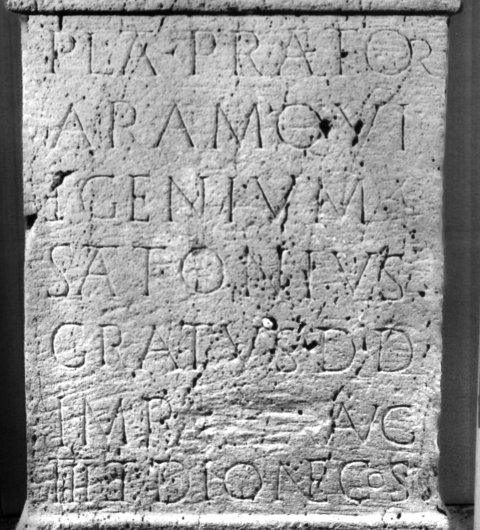 PLAT PRAETOR
ARAM QVI
GENIVM
SATTONIVS
GRATVS D D
IMP AVG
III ET DIONE COS